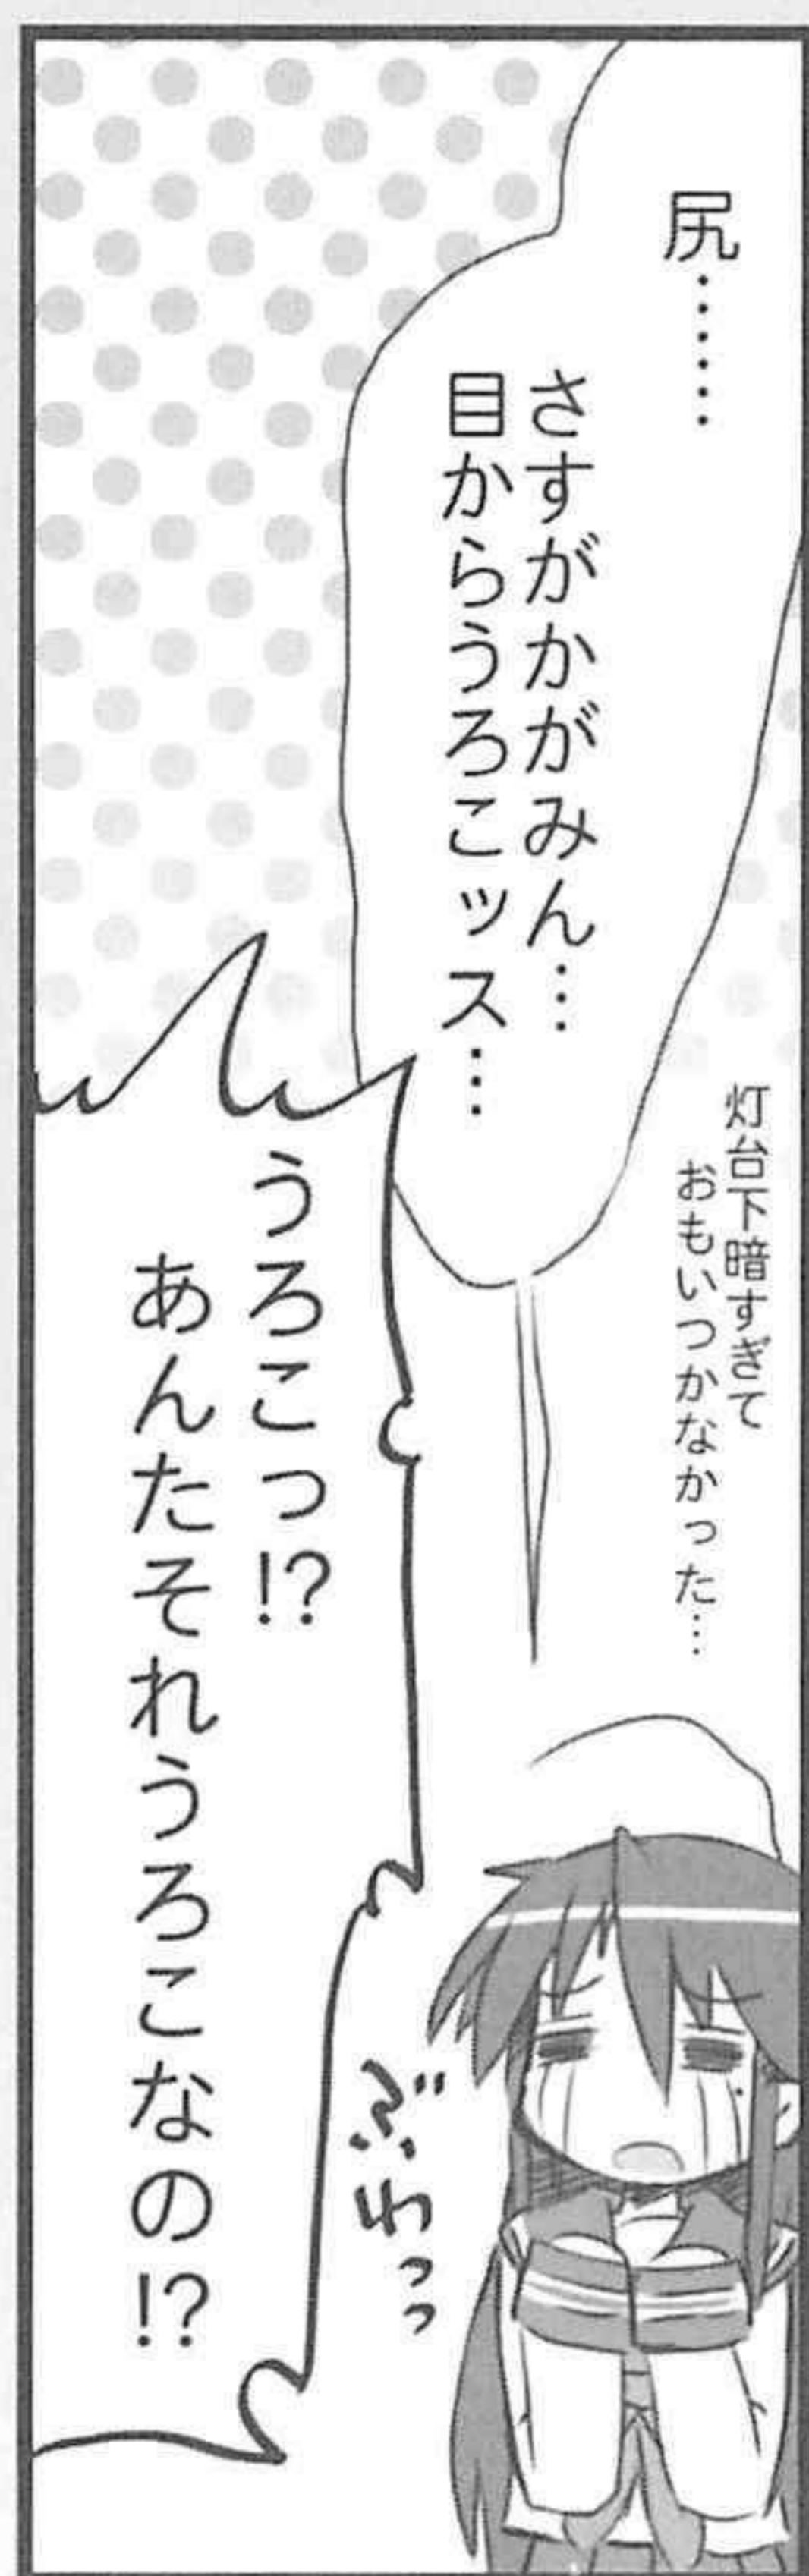 尻……
さすがかがみん…
目からうろこッス…
灯台下暗すぎて
おもいつかなかった…
ぶわっ
うろこっ!?
あんたそれうろこなの!?